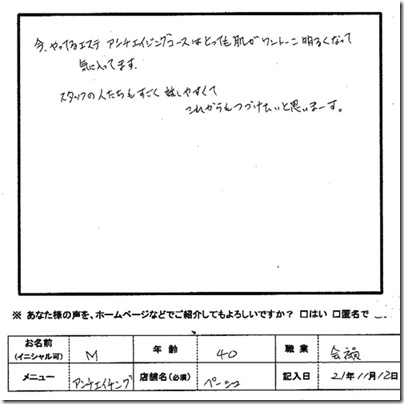 今、やってるエステ アンチエイジングコースはとっても肌がワントーン明るくなって
気に入ってます。
スタッフの人たちもすごく話しやすくて
これからもつづけたいと思いまーす。
※ あなた様の声を、ホームページなどでご紹介してもよろしいですか? □はい □匿名で
お名前 (イニシャル可) M 年齢 40 職業
メニュー アンチエイチング 店舗名(必須) 記入日 21年11月12日